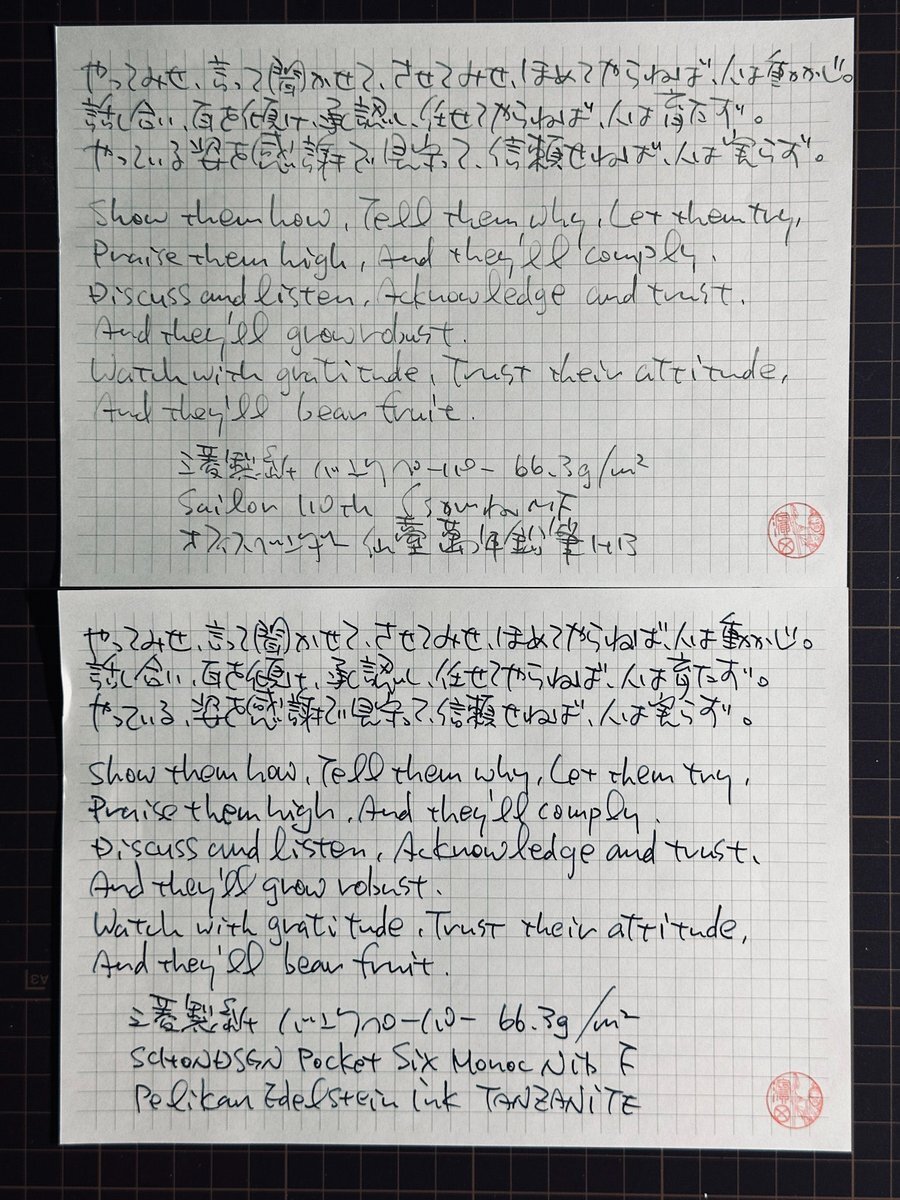 やってみせ、言って聞かせて、させてみせ、ほめてやらねば、人は動かじ。
話し合い、耳を傾け、承認し、任せてやらねば、人は育たず。
やっている、姿を感謝で見守って、信頼せねば、人は実らず。
Show them how, Tell them why, Let them try,
Praise them high, And they'll comply.
Discuss and listen, Acknowledge and trust.
And they'll grow robust.
Watch with gratitude, Trust their attitude,
And they'll bear fruit.
三菱製紙 バンクペーパー 66.3g/m²
Sailor 110th MF
仙臺萬年鉛筆
やってみせ、言って聞かせて、させてみせ、ほめてやらねば、人は動かじ。
話し合い、耳を傾け、承認し、任せてやらねば、人は育たず。
やっている、姿を感謝で見守って、信頼せねば、人は実らず。
Show them how, Tell them why, Let them try,
Praise them high, And they'll comply.
Discuss and listen, Acknowledge and trust.
And they'll grow robust.
Watch with gratitude, Trust their attitude,
And they'll bear fruit.
三菱製紙 バンクペーパー 66.3g/m²
SCHONDSGN Pocket Six Monoc Nib F
Pelikan Edelstein ink TANZANITE